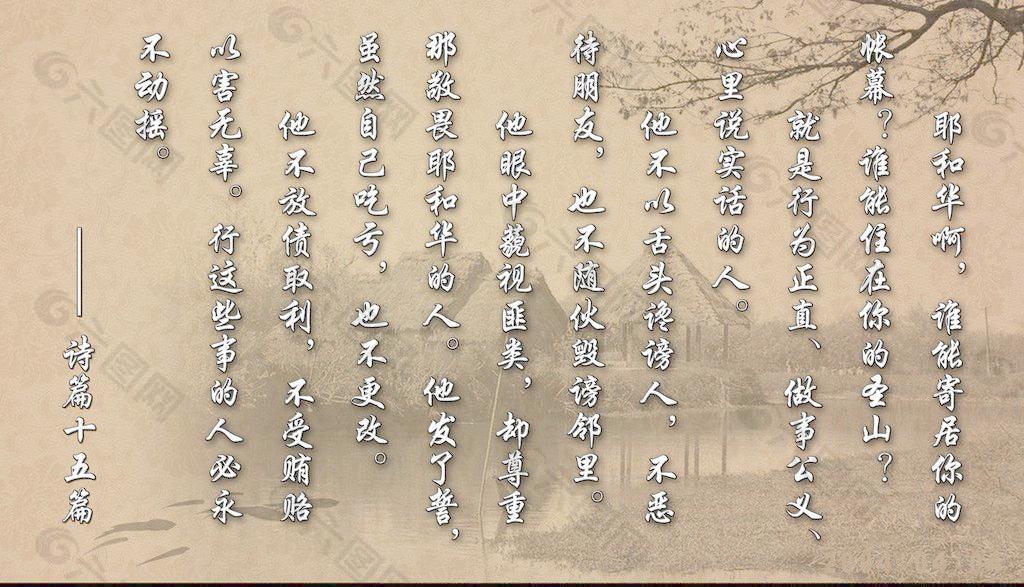 耶和华啊，谁能寄居你的
帐幕？谁能住在你的圣山？
就是行为正直、做事公义、
心里说实话的人。
他不以舌头谗谤人，不恶
待朋友，也不随伙毁谤邻里。
他眼中藐视匪类，却尊重
那敬畏耶和华的人。他发了誓，
虽然自己吃亏，也不更改。
他不放债取利，不受贿赂
以害无辜。行这些事的人必永
不动摇。
——诗篇十五篇
六图网